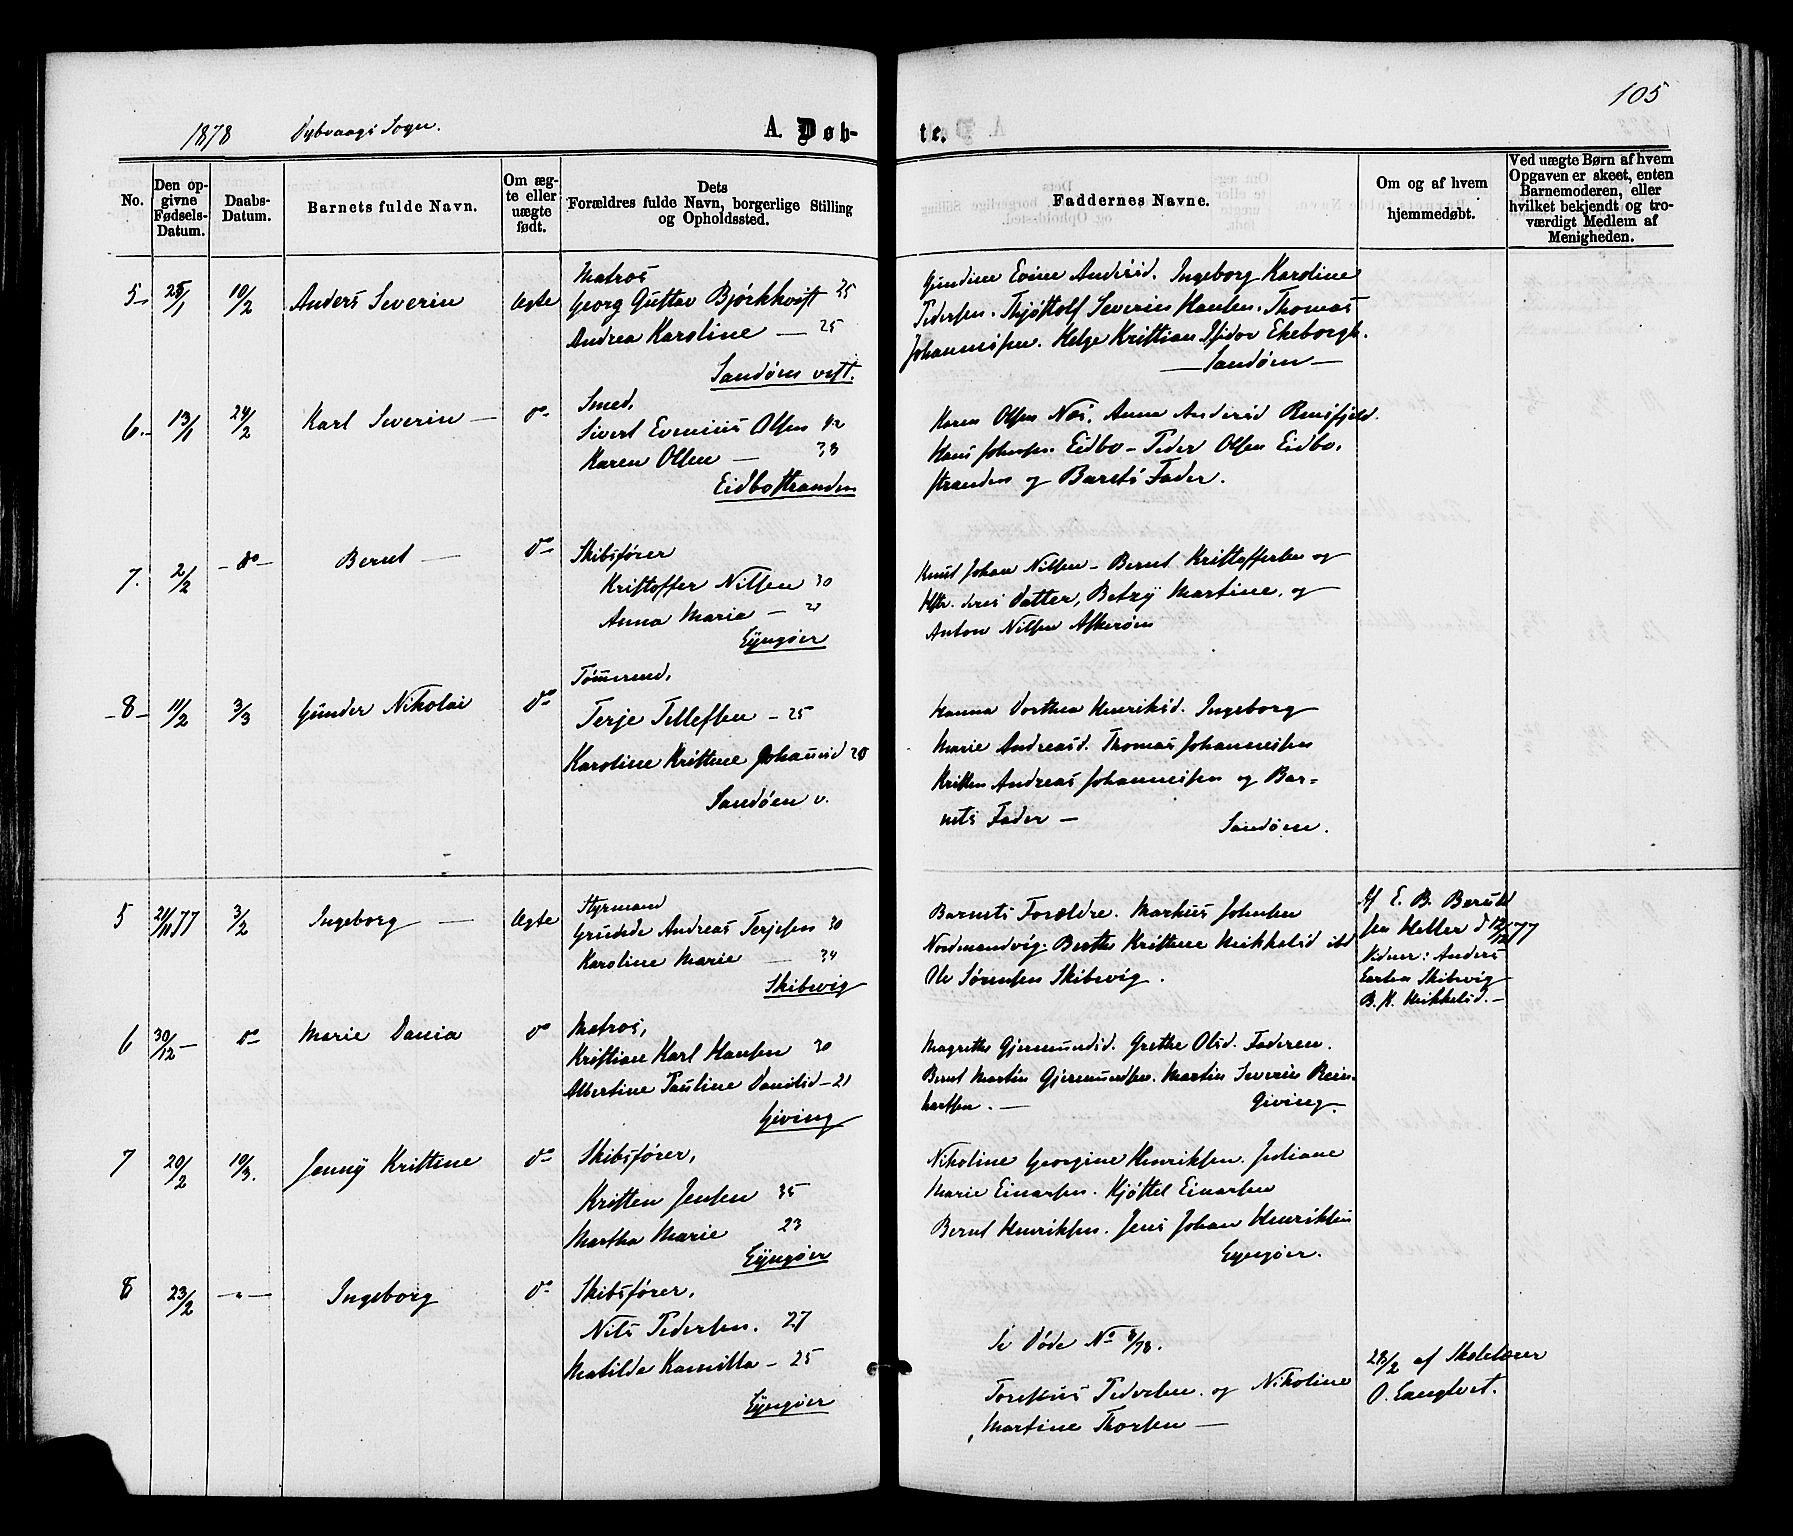 105
1878 Dybvaags Sogn.
A. Døb-
te.
No.
Den op-
givne
Fødsels-
Datum.
Daabs-
Datum.
Barnets fulde Navn.
Om æg-
te eller
uægte
født.
Dets
Forældres fulde Navn, borgerlige Stilling
og Opholdssted.
Faddernes Navne.
Om og af hvem
hjemmedøbt.
Ved uægte Børn af hvem
Opgaven er skeet, enten
Barnemoderen, eller
hvilket bekjendt og tro-
værdigt Medlem af
Menigheden.
5- 10/2 Anders Severin Ægte
Matros
Georg Gustav Bjørkkvist
Andrea Karoline — 25
Sandøen vest.
Gundine Evine Andersd. Ingeborg Karoline
Pedersen. Thjøstolf Severin Hansen. Thomas
Johannesen. Helge Kristian Isidor Ekeborgh.
— Sandøen —
6.- 13/1 24/2 Karl Severin — do
Smed,
Sivert Evenius Olsen
Karen Olsen — 38
Eidbostranden
Karen Olsen Næs, Anna Andersd
Hans Johnsen Eidbo – Peder Olsen Eidbo,
stranden og Barnets Fader.
7. 2/2 – do – Bernt — do
Skibsfører
Kristoffer Nilsen 30
Anna Maria —
Gjengøer
Knud Johan Nilsen – Bernt Kristoffersen og
deres Datter, Betzy Martine, og
Anton Nilsen Askerøen
-8- 11/2 3/3 Gunder Nikolai do
Tømmermd,
Terje Tellefsen – 25
Karoline Kristine Johansd 28
Sandøen v.
Hanna Dorthea Henriksd. Ingeborg
Marie Andreasd. Thomas Johannesen
Kristen Andreas Johannesen og Bar=
nets Fader — Sandøen.
5 77 3/2 Ingeborg — Ægte
Styrmand
Andreas Terjesen 30
Karoline Marie — 34
Skibevig
Barnets Forældre. Markus Johnsen
Nordmandvig. Berthe Kristine Mikkelsd ibd
Ole Sørensen Skibevig.
Af E. B. Berntd
sen Heller d 12/12 77
Vidner: Anders
Larsen Skibevig
B. K. Mikkelsd. –
6 30/12 – do Marie Dania do
Matros,
Kristian Karl Hansen 30
Albertine Pauline Danilsd – 21
Giving
Magrethe Gjermundsd. Grethe Olsd. Faderen.
Bernt Martin Gjermundsen. Martin Severin Rein-
hartsen. — Giving.
7 20/2 10/3. Jenny Kristine do
Skibsfører,
Kristen Jensen 35
Martha Marie 23
Gjengøer
Nikoline Georgine Henriksen. Juliane
Marie Einarsen. Kjøstel Einarsen
Bernt Henriksen. Jens Johan Henriksen
Gjengøer.
8 23/2 — " — Ingeborg do
Skibsfører,
Nils Pedersen. 27
Matilde Kamilla – 25
Gjengøer
Se Døde No 8/78.
Pedersen. og Nikoline
Martine Thorsen —
28/2 af Skolelærer
O. Langlvet.